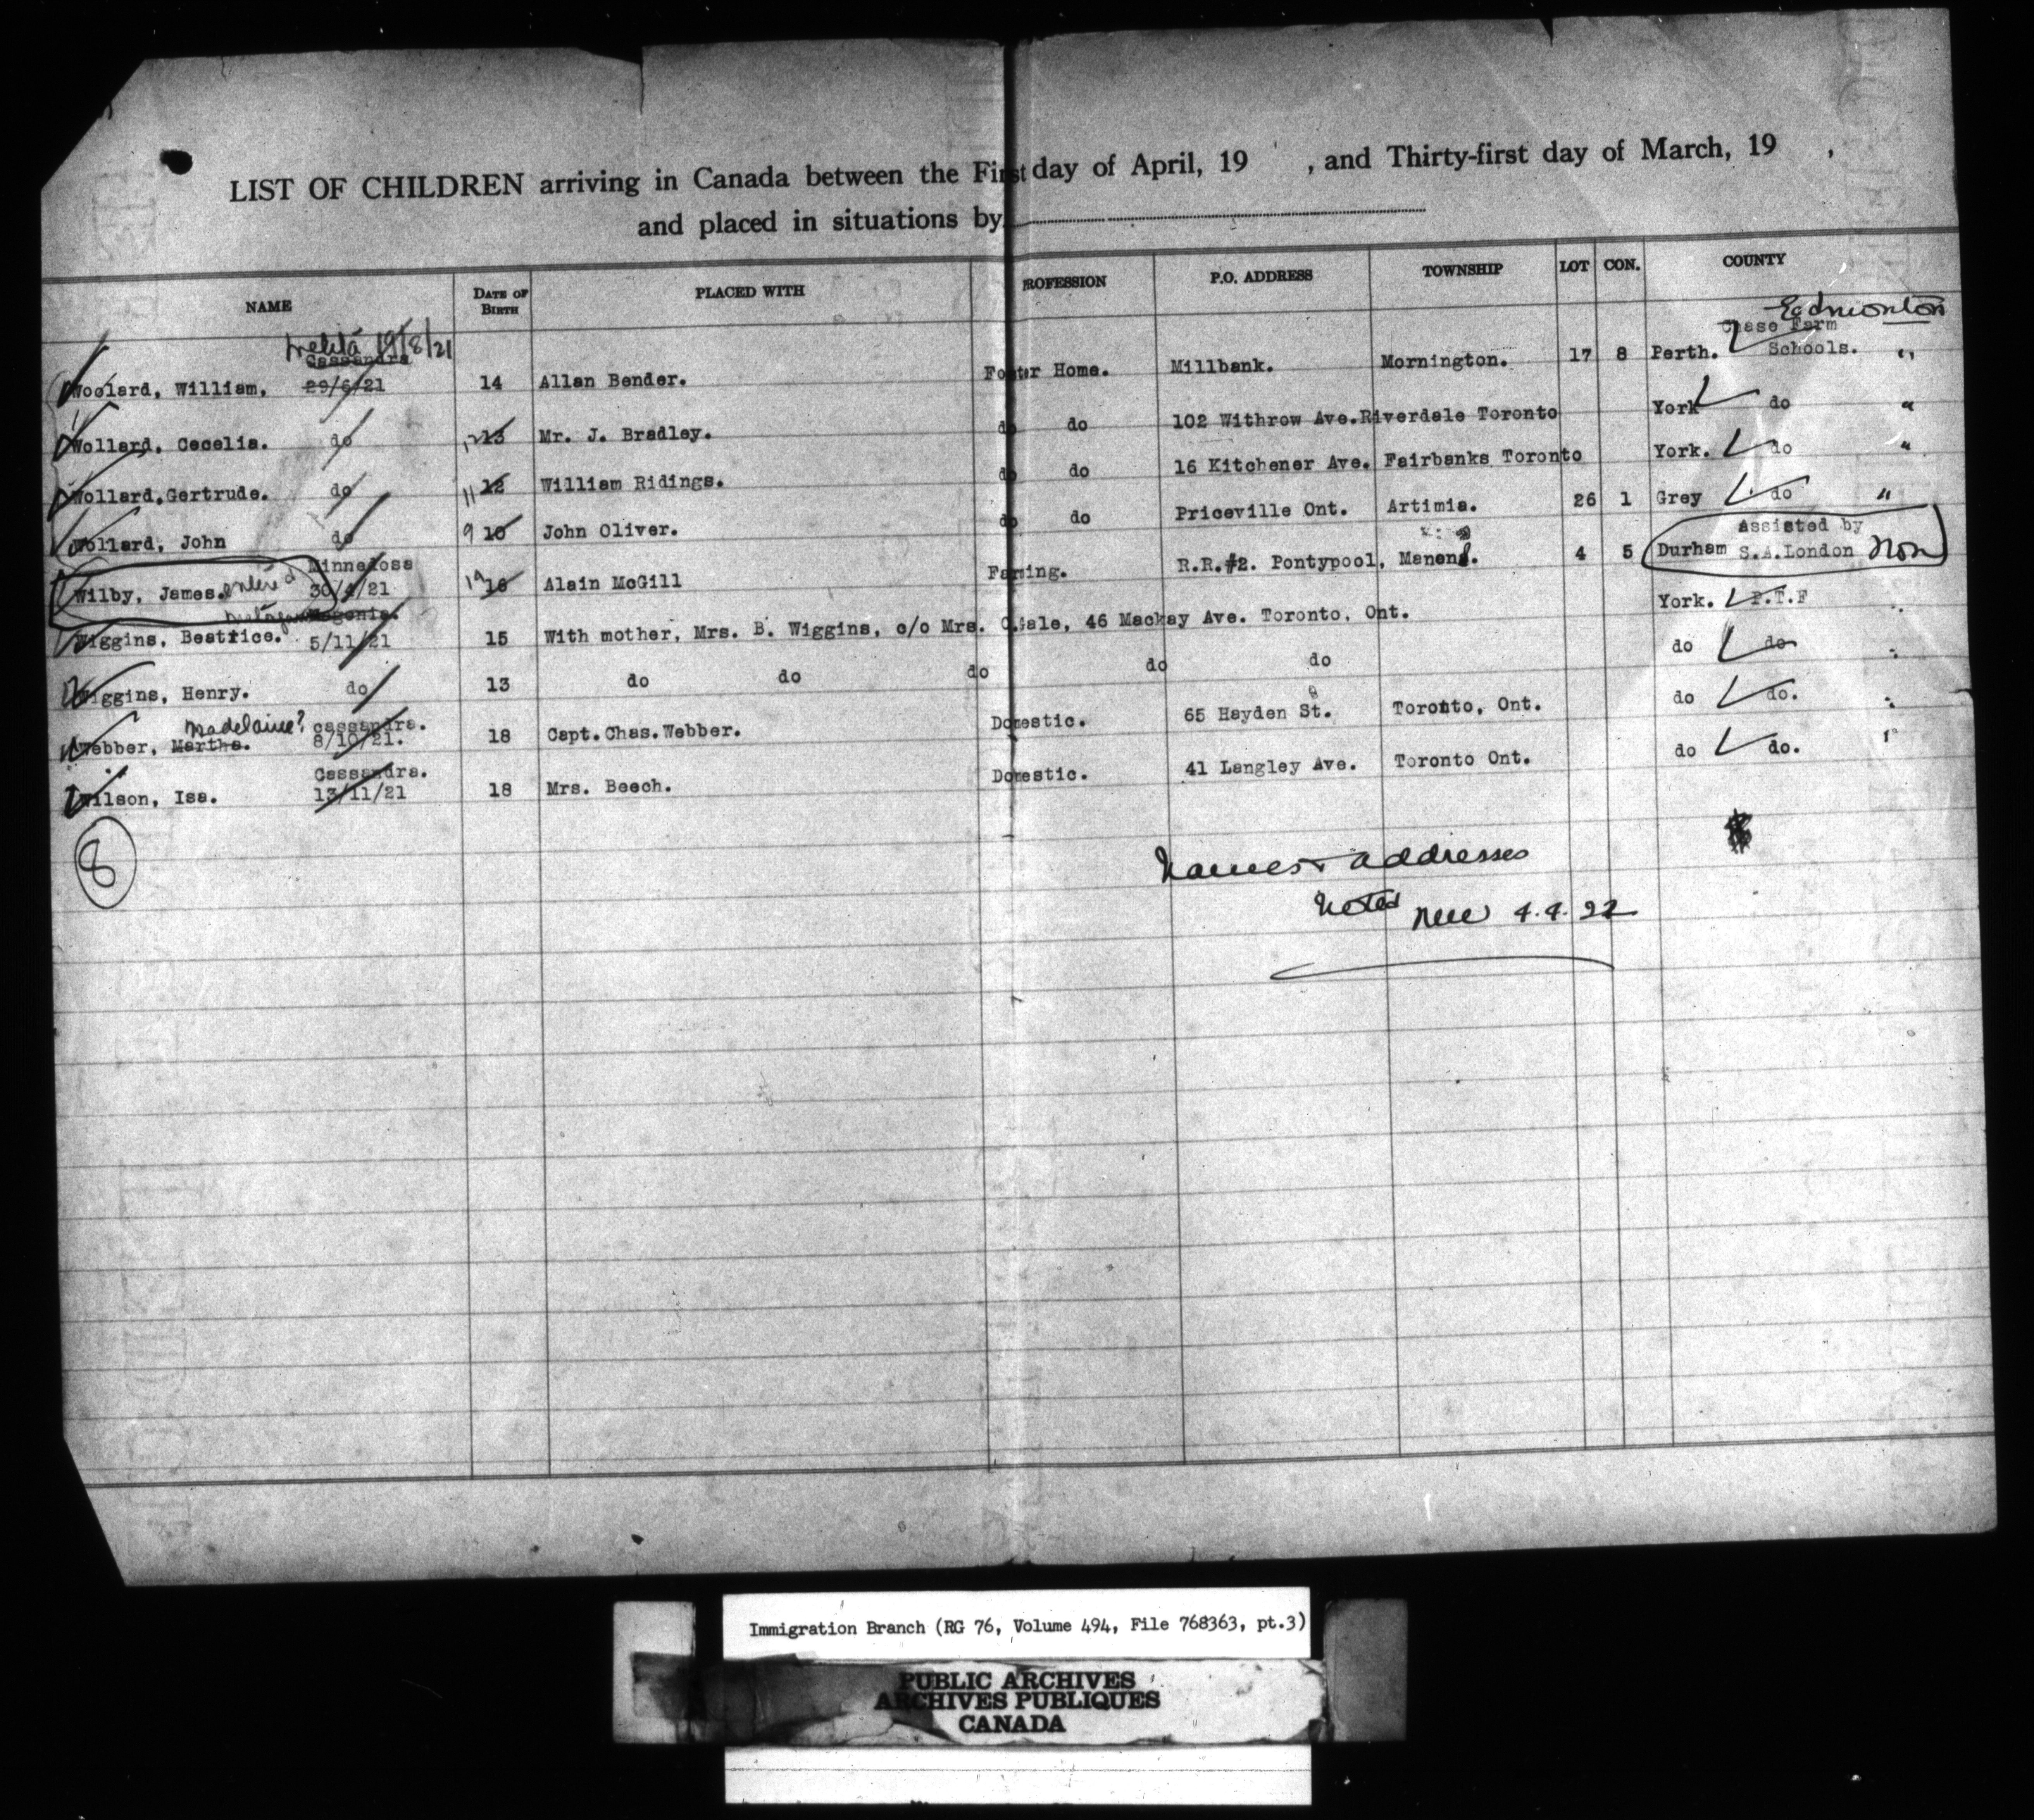 LIST OF CHILDREN arriving in Canada between the First day of April, 19 , and Thirty-first day of March, 19 ,
and placed in situations by
NAME DATE OF BIRTH PLACED WITH PROFESSION P.O. ADDRESS TOWNSHIP LOT CON. COUNTY
Melita 19/8/21 Edmonton
Cassandra Chase Farm
Woolard, William, 29/6/21 14 Allan Bender. Foster Home. Millbank. Mornington. 17 8 Perth. Schools. "
Wollard, Cecelia. do 12 13 Mr. J. Bradley. do do 102 Withrow Ave. Riverdale Toronto York do "
Wollard, Gertrude. do 11 12 William Ridings. do do 16 Kitchener Ave. Fairbanks Toronto York. do "
Wollard, John do 9 10 John Oliver. do do Priceville Ont. Artimia. 26 1 Grey do "
Minnedosa Assisted by
Wilby, James. entered 30/4/21 16 Alain McGill Farming. R.R.#2. Pontypool, Manens. 4 5 Durham S.A. London Non
Wiggins, Beatrice. 5/11/21 15 With mother, Mrs. B. Wiggins, c/o Mrs. C. Gale, 46 Mackay Ave. Toronto, Ont. York. P.T.F
Wiggins, Henry. do 13 do do do do do do do
Madelaine? Cassandra.
Webber, Martha. 8/10/21. 18 Capt. Chas. Webber. Domestic. 65 Hayden St. Toronto, Ont. do do.
Cassandra.
Wilson, Isa. 13/11/21 18 Mrs. Beech. Domestic. 41 Langley Ave. Toronto Ont. do do. "
8
Names + addresses
Noted 4.4.22
Immigration Branch (RG 76, Volume 494, File 768363, pt.3)
PUBLIC ARCHIVES
ARCHIVES PUBLIQUES
CANADA